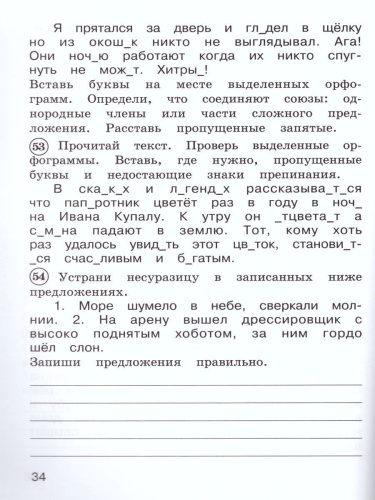 Я прятался за дверь и гл_дел в щёлку
но из окош_к никто не выглядывал. Ага!
Они ноч_ю работают когда их никто спуг-
нуть не мож_т. Хитры_!
Вставь буквы на месте выделенных орфо-
грамм. Определи, что соединяют союзы: од-
нородные члены или части сложного пред-
ложения. Расставь пропущенные запятые.
53 Прочитай текст. Проверь выделенные ор-
фограммы. Вставь, где нужно, пропущенные
буквы и недостающие знаки препинания.
В ска_к_х и л_генд_х рассказыва_т_ся
что пап_ротник цветёт раз в году в ноч_
на Ивана Купалу. К утру он _тцвета_т а
с_м_на падают в землю. Тот, кому хоть
раз удалось увид_ть этот цв_ток, станови_т-
_ся счас_ливым и б_гатым.
54 Устрани несуразицу в записанных ниже
предложениях.
1. Море шумело в небе, сверкали мол-
нии. 2. На арену вышел дрессировщик с
высоко поднятым хоботом, за ним гордо
шёл слон.
Запиши предложения правильно.
34